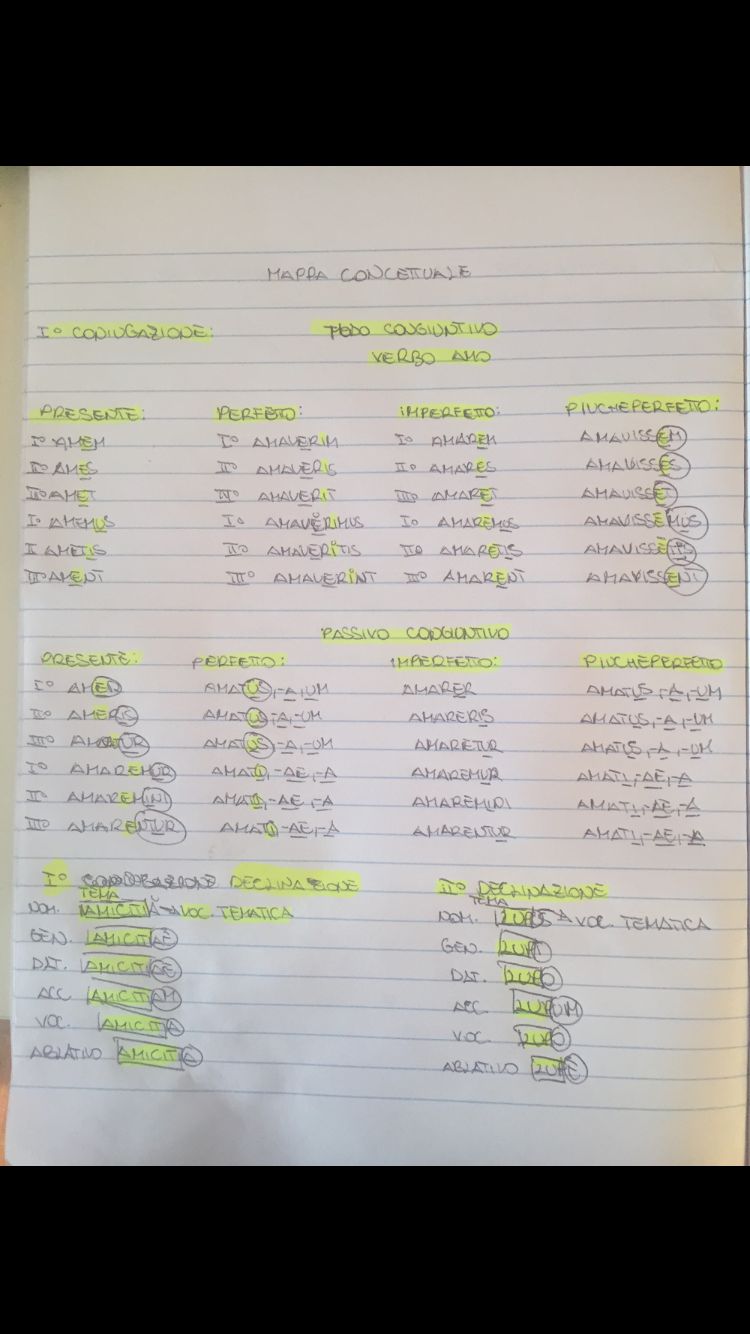 MAPPA CONCETTUALE
I° CONIUGAZIONE: MODO CONGIUNTIVO
VERBO AMO
PRESENTE: PERFETTO: IMPERFETTO: PIUCHEPERFETTO:
I° AMEM I° AMAVERIM I° AMAREM AMAVISSEM
II° AMES II° AMAVERIS II° AMARES AMAVISSES
III° AMET III° AMAVERIT III° AMARET AMAVISSET
I° AMEMUS I° AMAVERIMUS I° AMAREMUS AMAVISSEMUS
II AMETIS II° AMAVERITIS II° AMARETIS AMAVISSETIS
III° AMENT III° AMAVERINT III° AMARENT AMAVISSENT
PASSIVO CONGIUNTIVO
PRESENTE: PERFETTO: IMPERFETTO: PIUCHEPERFETTO
I° AMER AMATUS,-A,UM AMARER AMATUS,-A,-UM
II° AMERIS AMATUS,-A,-UM AMARERIS AMATUS,-A,-UM
III° AMATUR AMATUS,-A,-UM AMARETUR AMATUS,-A,-UM
I° AMAREMUR AMATI,-AE,-A AMAREMUR AMATI,-AE,-A
II° AMAREMINI AMATI,-AE,-A AMAREMINI AMATI,-AE,-A
III° AMARENTUR AMATI,-AE,-A AMARENTUR AMATI,-AE,-A
I° DECLINAZIONE II° DECLINAZIONE
TEMA TEMA
NOM. AMICITIA → VOC. TEMATICA NOM. LUPUS → VOC. TEMATICA
GEN. AMICITIAE GEN. LUPI
DAT. AMICITIAE DAT. LUPO
ACC. AMICITIAM ACC. LUPUM
VOC. AMICITIA VOC. LUPO
ABLATIVO AMICITIA ABLATIVO LUPE